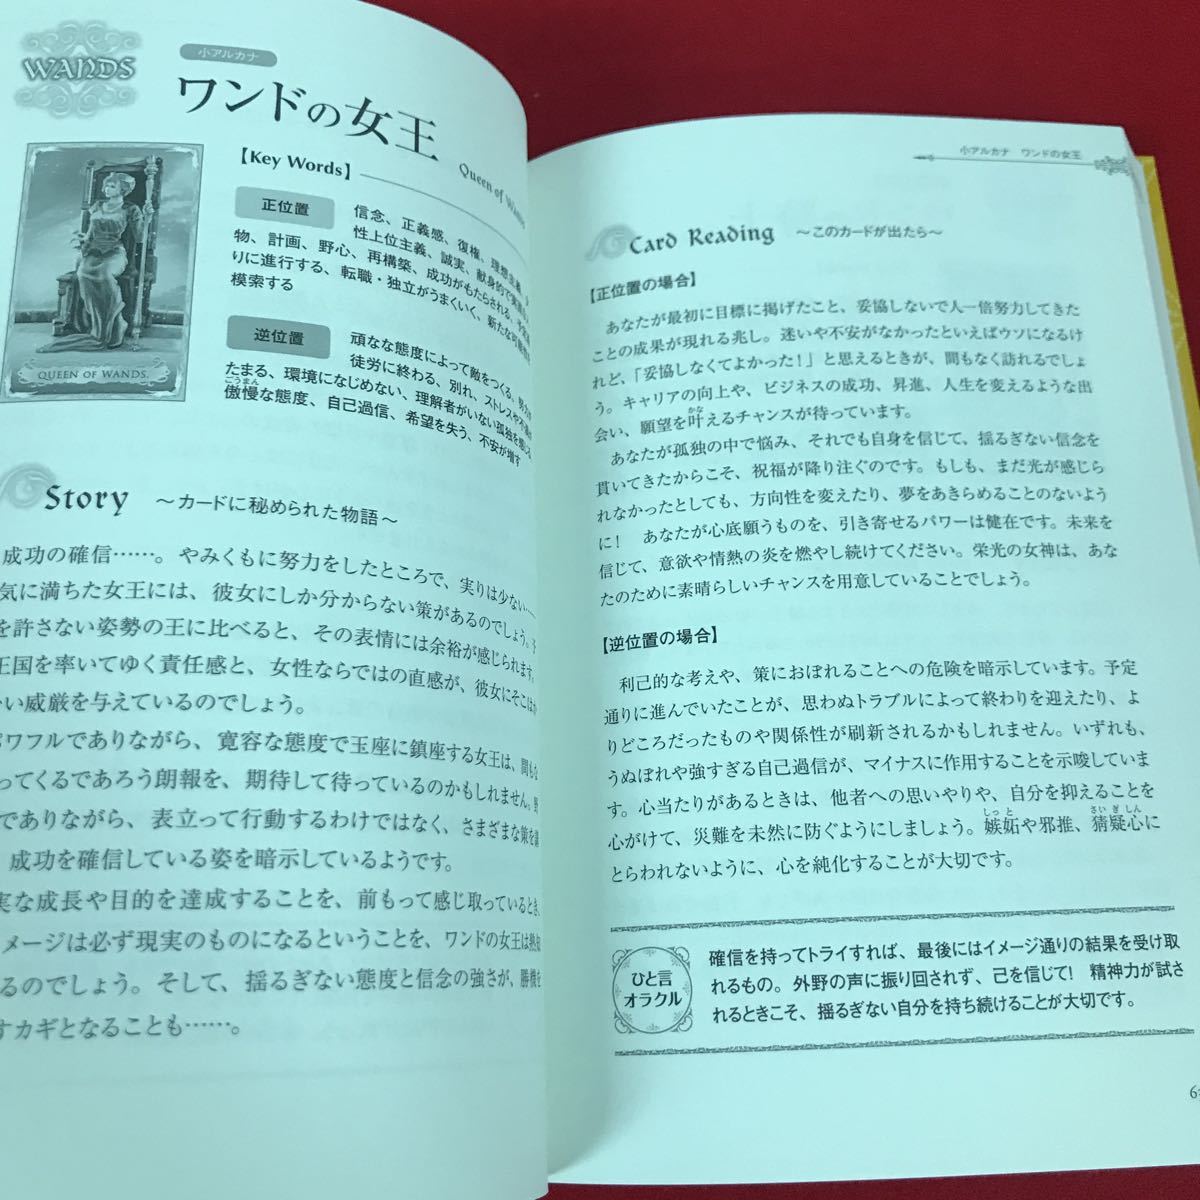 WANDS
小アルカナ
ワンドの女王
Queen of Wands
QUEEN OF WANDS.
【Key Words】
正位置
信念、正義感、復権、理想
性上位主義、誠実、献身的で
物、計画、野心、再構築、成功がもたらされる、
りに進行する、転職・独立がうまくいく、新たな可能性を
模索する
逆位置
頑なな態度によって敵をつくる、努力が
徒労に終わる、別れ、ストレスや
たまる、環境になじめない、理解者がいない孤独を感じる
ごうまん
傲慢な態度、自己過信、希望を失う、不安が増す
Story ～カードに秘められた物語～
成功の確信……。やみくもに努力をしたところで、実りは少ない……
気に満ちた女王には、彼女にしか分からない策があるのでしょう。
を許さない姿勢の王に比べると、その表情には余裕が感じられます。
王国を率いてゆく責任感と、女性ならではの直感が、彼女にそこはか
い威厳を与えているのでしょう。
ワフルでありながら、寛容な態度で玉座に鎮座する女王は、間もな
ってくるであろう朗報を、期待して待っているのかもしれません。野
でありながら、表立って行動するわけではなく、さまざまな策を
成功を確信している姿を暗示しているようです。
実な成長や目的を達成することを、前もって感じ取っているとき、
メージは必ず現実のものになるということを、ワンドの女王は熟知
るのでしょう。そして、揺るぎない態度と信念の強さが、勝機を
すカギとなることも……。
小アルカナ　ワンドの女王
Card Reading ～このカードが出たら～
【正位置の場合】
あなたが最初に目標に掲げたこと、妥協しないで人一倍努力してきた
ことの成果が現れる兆し。迷いや不安がなかったといえばウソになるけ
れど、「妥協しなくてよかった！」と思えるときが、間もなく訪れるでしょ
う。キャリアの向上や、ビジネスの成功、昇進、人生を変えるような出
かな
会い、願望を叶えるチャンスが待っています。
あなたが孤独の中で悩み、それでも自身を信じて、揺るぎない信念を
貫いてきたからこそ、祝福が降り注ぐのです。もしも、まだ光が感じら
れなかったとしても、方向性を変えたり、夢をあきらめることのないよう
に！　あなたが心底願うものを、引き寄せるパワーは健在です。未来を
信じて、意欲や情熱の炎を燃やし続けてください。栄光の女神は、あな
たのために素晴らしいチャンスを用意していることでしょう。
【逆位置の場合】
利己的な考えや、策におぼれることへの危険を暗示しています。予定
通りに進んでいたことが、思わぬトラブルによって終わりを迎えたり、よ
りどころだったものや関係性が刷新されるかもしれません。いずれも、
うぬぼれや強すぎる自己過信が、マイナスに作用することを示唆していま
す。心当たりがあるときは、他者への思いやりや、自分を抑えることを
しっと　さいぎしん
心がけて、災難を未然に防ぐようにしましょう。嫉妬や邪推、猜疑心に
とらわれないように、心を純化することが大切です。
ひと言
オラクル
確信を持ってトライすれば、最後にはイメージ通りの結果を受け取
れるもの。外野の声に振り回されず、己を信じて！ 精神力が試さ
れるときこそ、揺るぎない自分を持ち続けることが大切です。